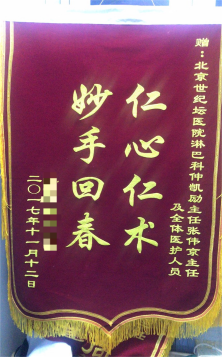 赠：北京世纪坛医院淋巴科仲凯励主任张伟京主任
及全体医护人员
仁心仁术
妙手回春
二〇一七年十一月十二日